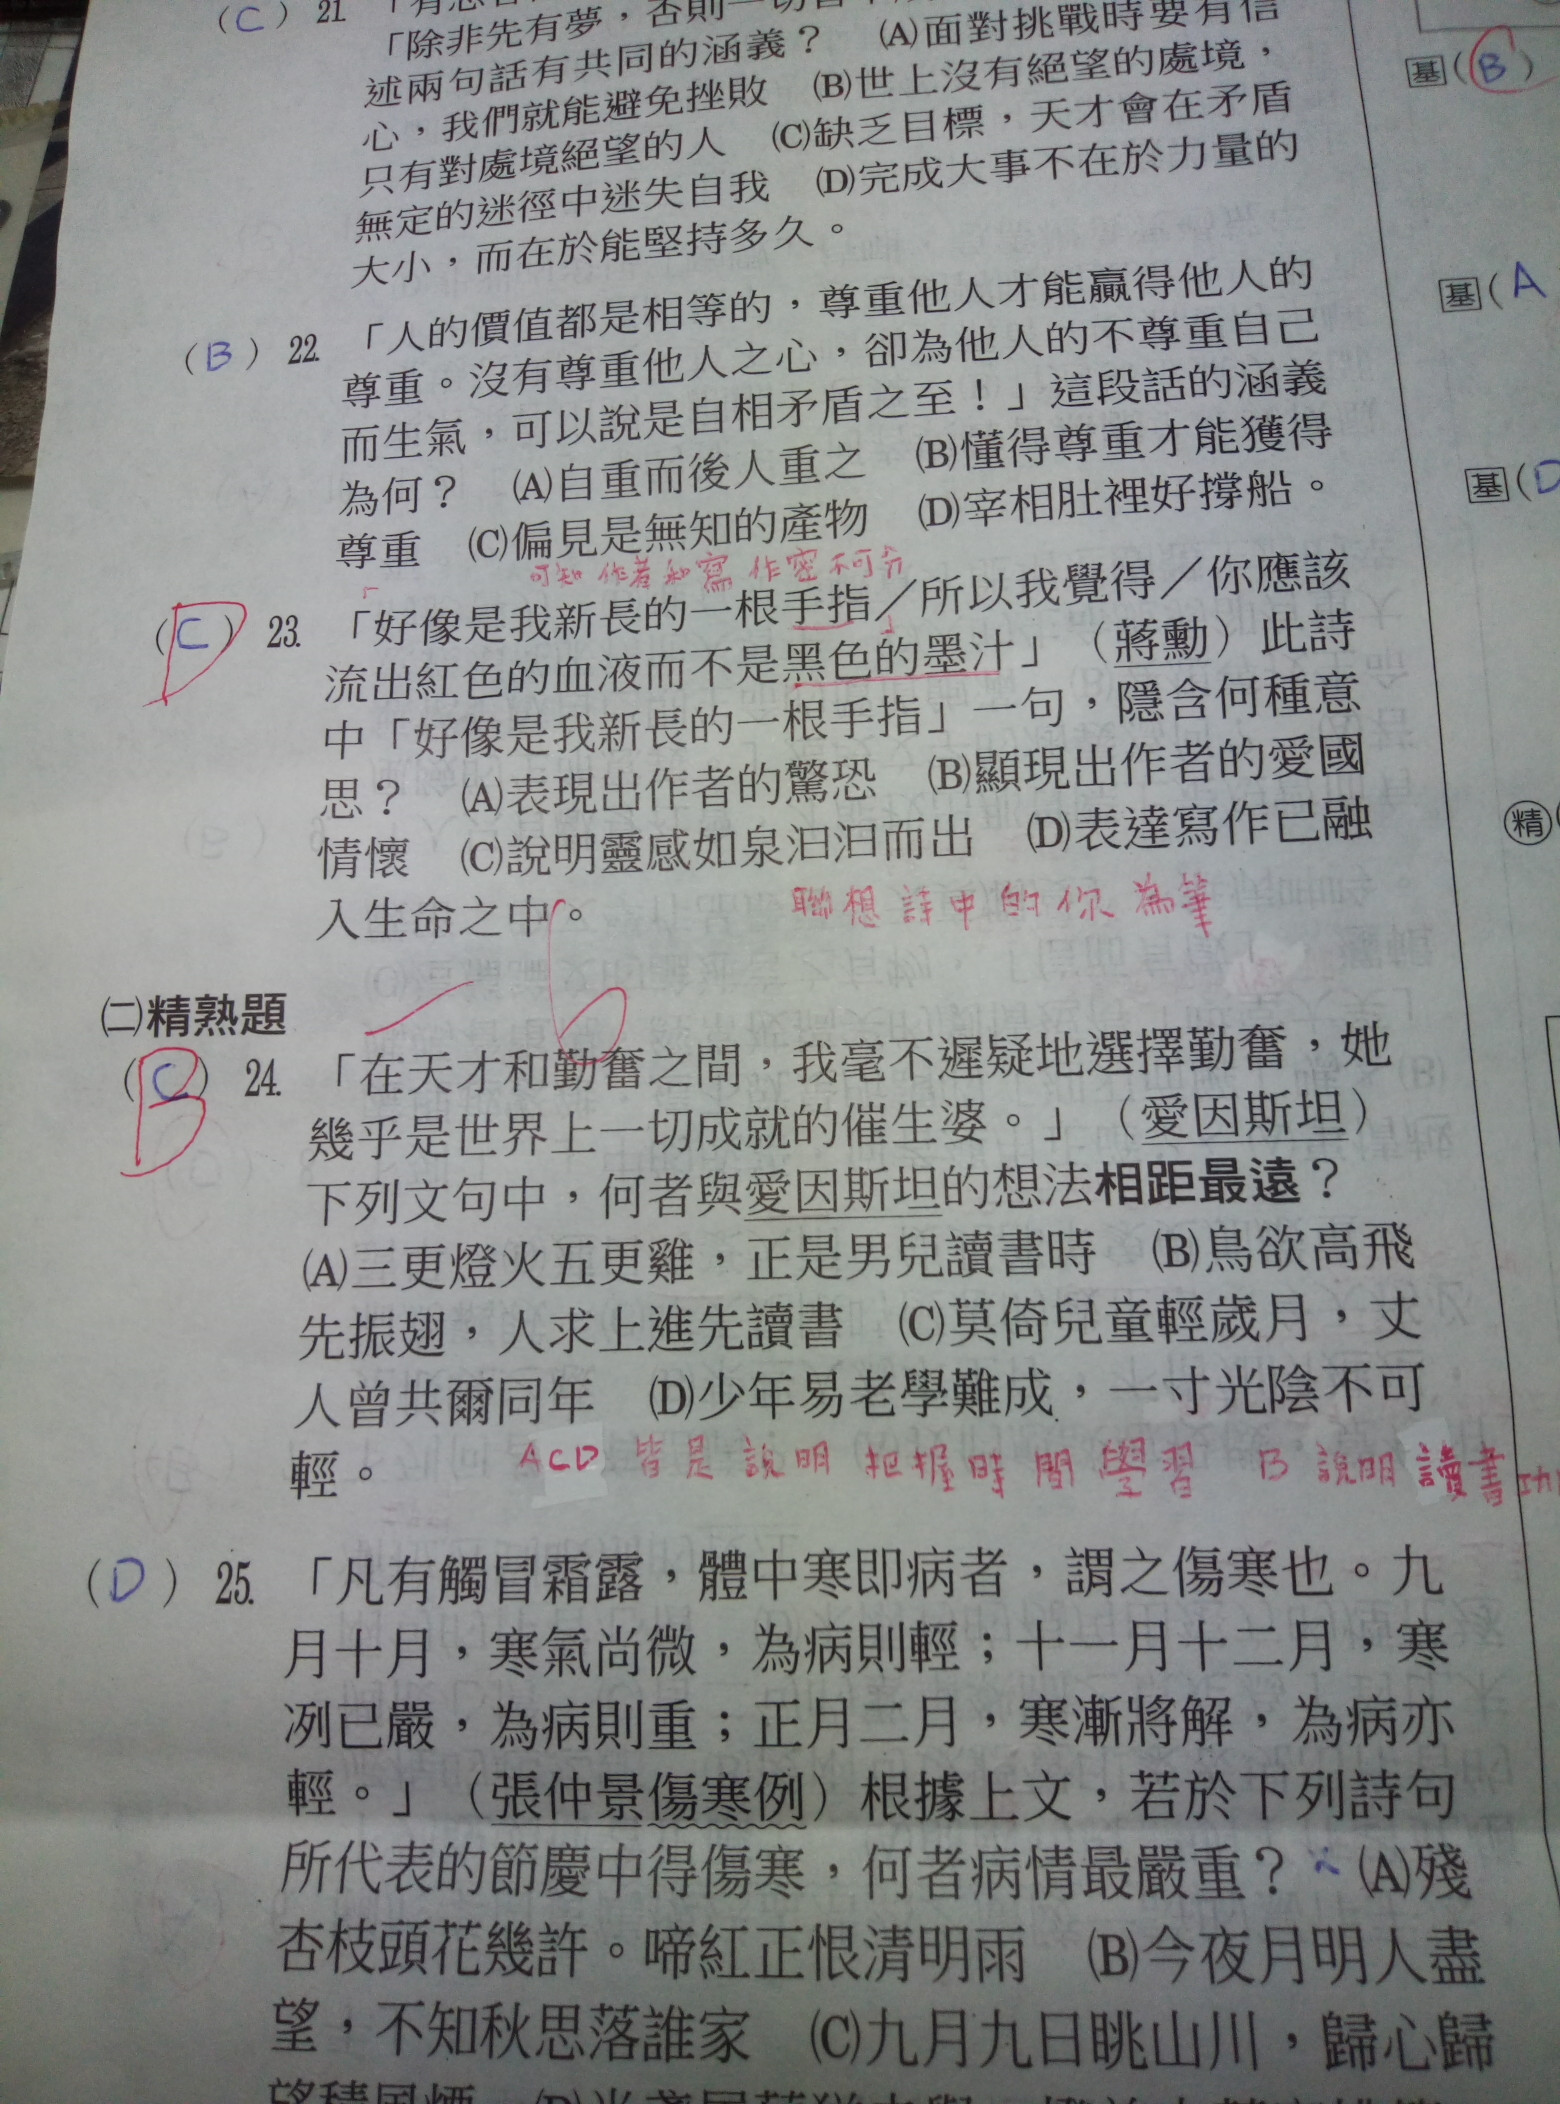 (C) 21.
「除非先有夢，否則一切皆
述兩句話有共同的涵義？ (A)面對挑戰時要有信
心，我們就能避免挫敗 (B)世上沒有絕望的處境，
只有對處境絕望的人 (C)缺乏目標，天才會在矛盾
無定的迷徑中迷失自我 (D)完成大事不在於力量的
大小，而在於能堅持多久。
(B) 22. 「人的價值都是相等的，尊重他人才能贏得他人的
尊重。沒有尊重他人之心，卻為他人的不尊重自己
而生氣，可以說是自相矛盾之至！」這段話的涵義
為何？ (A)自重而後人重之 (B)懂得尊重才能獲得
尊重 (C)偏見是無知的產物 (D)宰相肚裡好撐船。
可知 作者和寫作密不可分
(C) D 23. 「好像是我新長的一根手指／所以我覺得／你應該
流出紅色的血液而不是黑色的墨汁」（蔣勳）此詩
中「好像是我新長的一根手指」一句，隱含何種意
思？ (A)表現出作者的驚恐 (B)顯現出作者的愛國
情懷 (C)說明靈感如泉汩汩而出 (D)表達寫作已融
入生命之中。
聯想詩中的你為筆
㈡精熟題
(C) B 24. 「在天才和勤奮之間，我毫不遲疑地選擇勤奮，她
幾乎是世界上一切成就的催生婆。」（愛因斯坦）
下列文句中，何者與愛因斯坦的想法相距最遠？
(A)三更燈火五更雞，正是男兒讀書時 (B)鳥欲高飛
先振翅，人求上進先讀書 (C)莫倚兒童輕歲月，丈
人曾共爾同年 (D)少年易老學難成，一寸光陰不可
輕。
ACD 皆是說明把握時間學習 B 說明讀書
(D) 25. 「凡有觸冒霜露，體中寒即病者，謂之傷寒也。九
月十月，寒氣尚微，為病則輕；十一月十二月，寒
冽已嚴，為病則重；正月二月，寒漸將解，為病亦
輕。」（張仲景傷寒例）根據上文，若於下列詩句
所代表的節慶中得傷寒，何者病情最嚴重？ (A)殘
杏枝頭花幾許。啼紅正恨清明雨 (B)今夜月明人盡
望，不知秋思落誰家 (C)九月九日眺山川，歸心歸
望積風煙
基(B)
基(A
基(D
精(